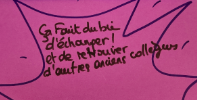 ça fait du bien
d'échanger !
et de retrouver
d'autres anciens collègues,